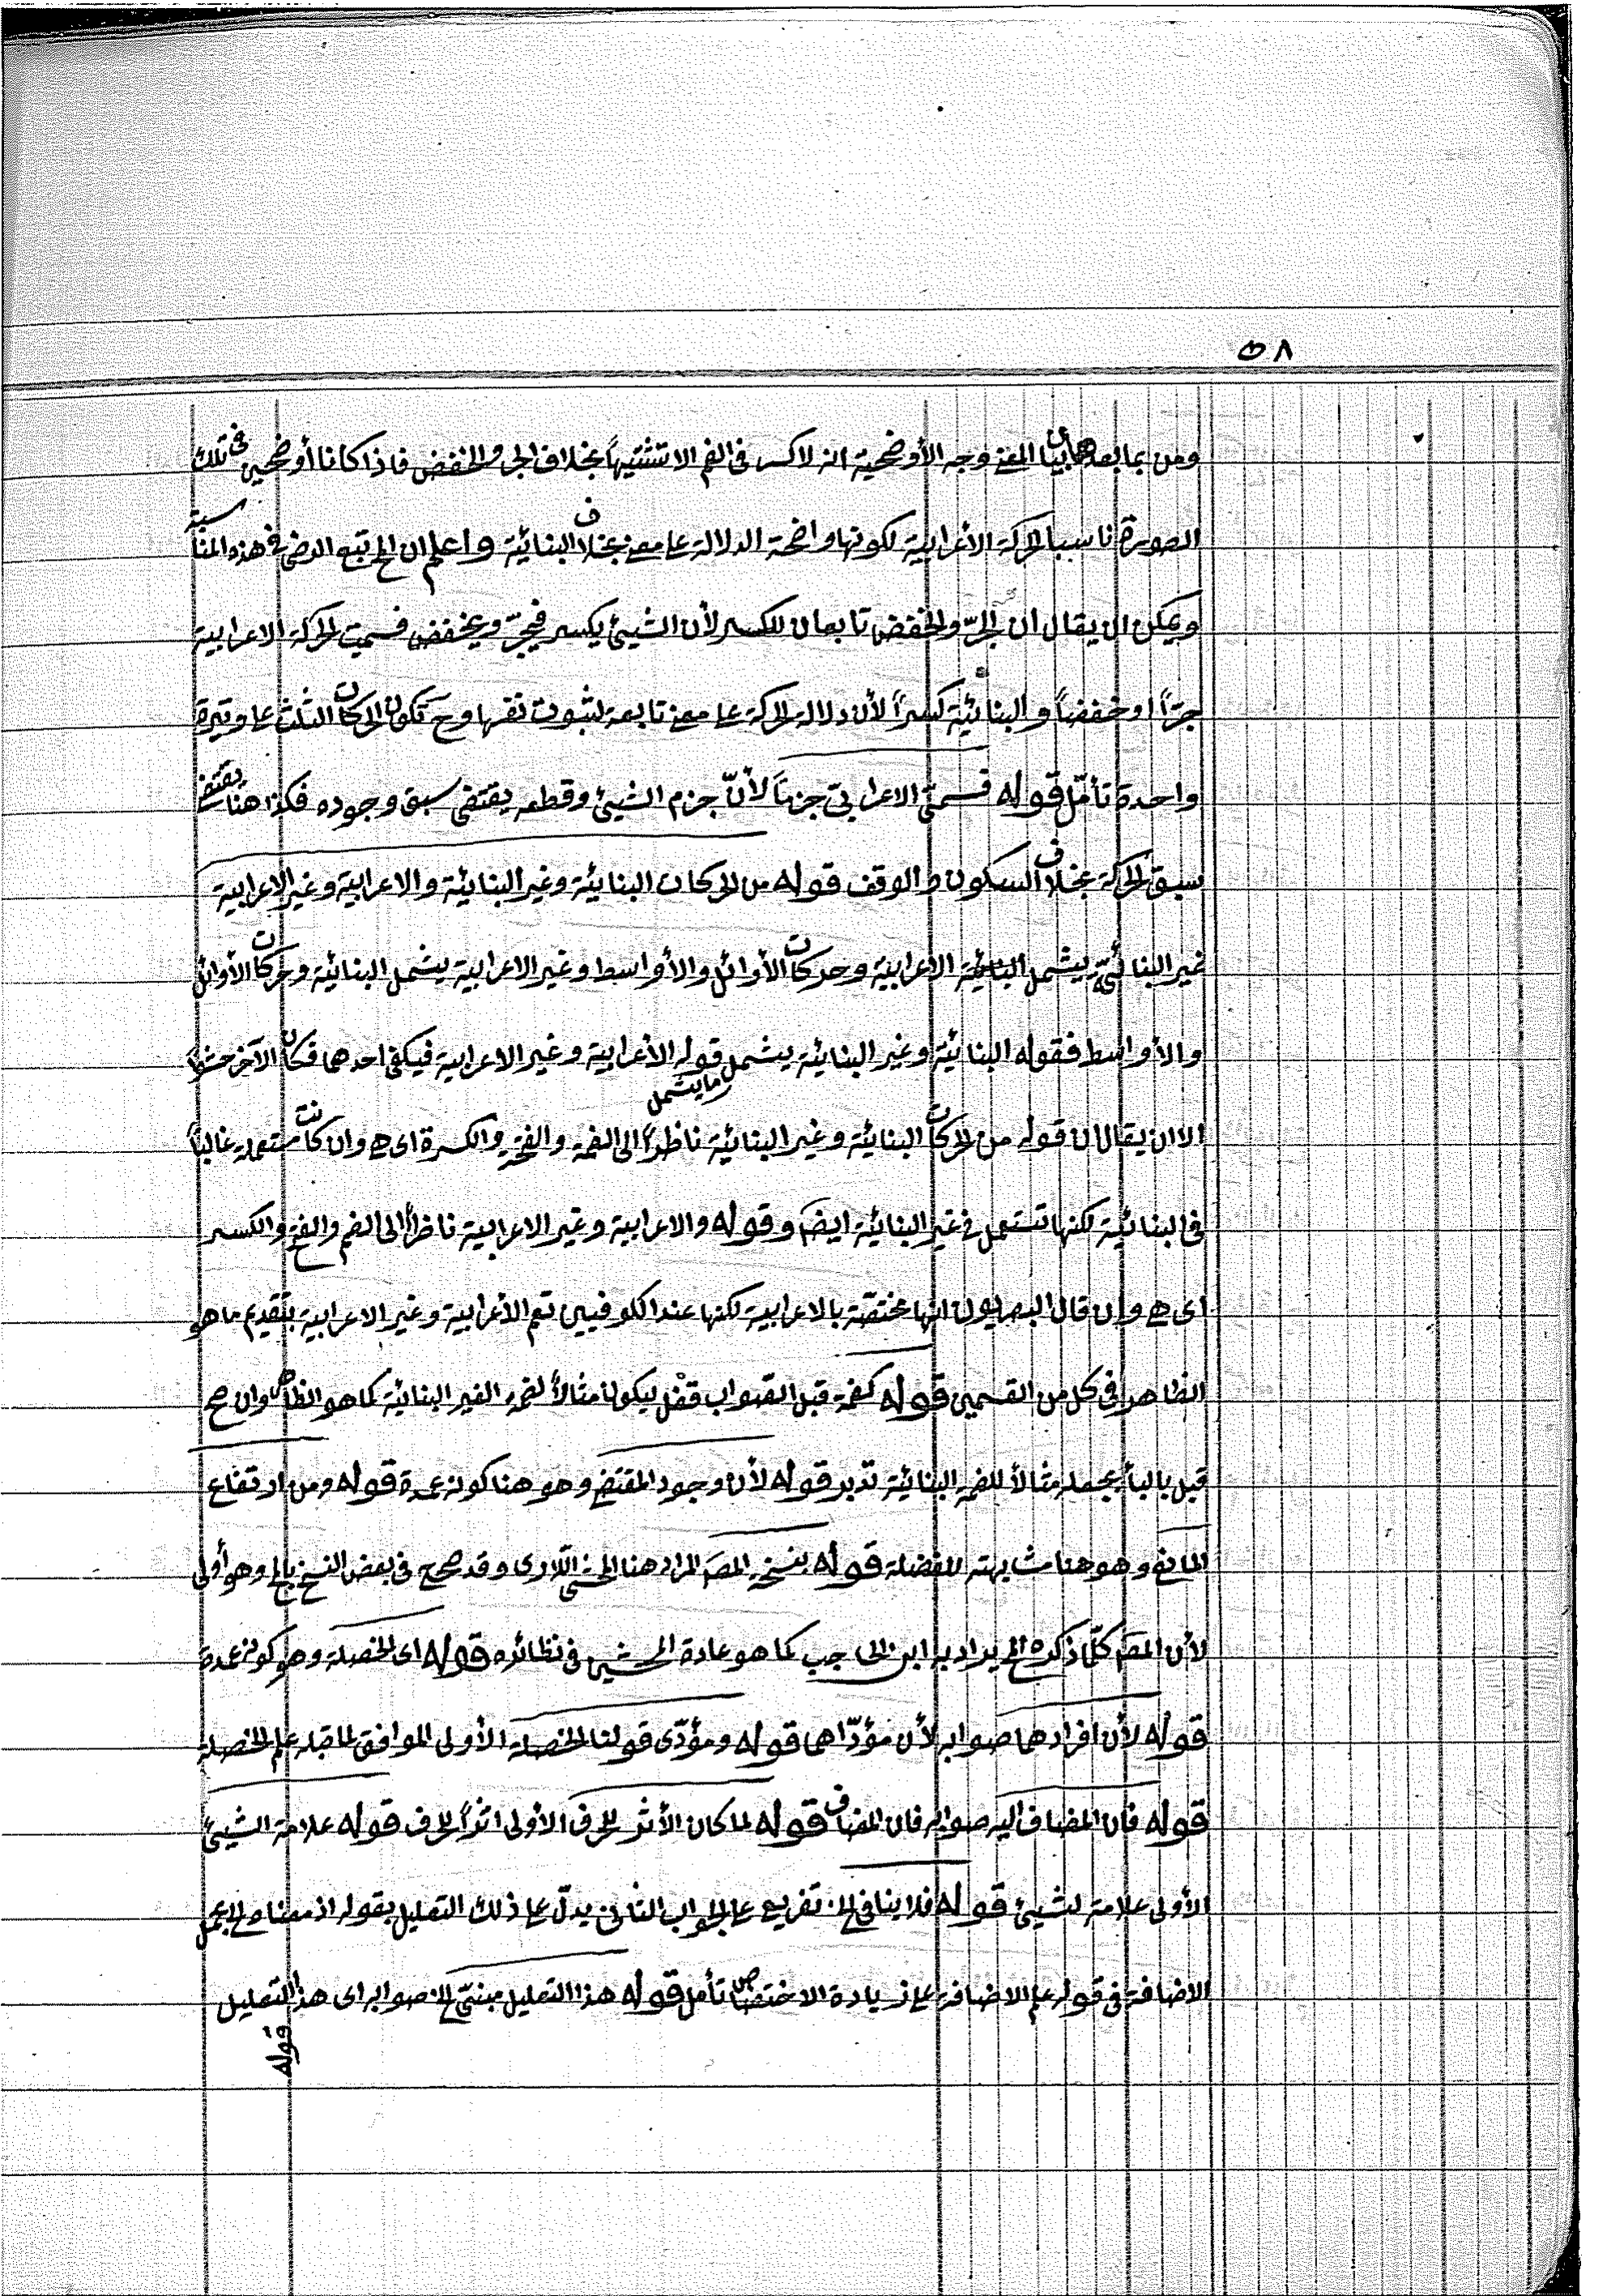 ٥٨
ومن بما بعدها بيان المعنى وجه الأوضحية انه لا كسر فى الفم الا تشبيهاً بخلاف الجر والخفض فاذا كانا أوضحين فى تلك
الصورة ناسبا الحركة الأعرابية لكونها واضحة الدلالة على معنى بخلاف البنائية واعلم ان الجر تبع الرضى فى هذه المناسبة
ويمكن ان يقال ان الجرّ والخفض تابعان للكسر لأن الشيئ يكسر فيجرّ ويخفض فسميت الحركة الاعرابية
جرّاً او خفضاً والبنائية كسراً لأن دلالة الحركة على معنى تابعة لثبوت نفسها وح تكون الحركات الثلث على وتيرة
واحدة تأمّل قوله فسمىّ الاعرابىّ جزماً لأنّ جزم الشيئ وقطعه يقتضى سبق وجوده فكذا هنا يقتضى
سبق الحركة بخلاف السكون والوقف قوله من الحركات البنائية وغير البنائية والاعرابية وغير الاعرابية
غير البنائيّة يشمل الاعرابية وحركات الأوائل والأواسط وغير الاعرابية يشمل البنائية وحركات الأوائل
والأواسط فقوله البنائية وغير البنائية يشمل ما يشمل قوله الأعرابية وغير الاعرابية فيكفى احدهما فكان الآخر حشواً
الا ان يقال ان قوله من الحركات البنائية وغير البنائية ناظراً الى الضمة والفتحة والكسرة اى هى وان كانت مستعملة غالباً
فى البنائية لكنها تستعمل فى غير البنائية ايضم وقوله والاعرابية وغير الاعرابية ناظراً الى الضم والفتح والكسر
اى هى وان قال البصريون انها مختصّة بالاعرابية لكنها عند الكوفيين تعم الأعرابية وغير الاعرابية بتقديم ما هو
الظاهر فى كل من القسمين قوله كضمة قبل الصواب قفل ليكون مثالاً لضمة الغير البنائية كما هو الظاهر وان صح
قبل بالبأ بجعله مثالاً للضمة البنائية تدبر قوله لأن وجود المقتضى وهو هنا كونه عمدة قوله ومن ارتفاع
المانع وهو هنا مشابهته للفضلة قوله بنسخة المصم المراد هنا المحشى اللارى وقد صحح فى بعض النسخ بالجر وهو أولى
لأن المصم كلّما ذكره المحشى يراد به ابن الحاجب كما هو عادة المحشين فى نظائره قوله اى الخصلة وهو كونه عمدة
قوله لأن افرادهما صوابه لأن مؤدّاهما قوله ومؤدّى قولنا الخصلة الأولى الموافق لما قبله علم الخصلة
قوله فان المضاف اليه صوابه فان المضاف قوله لما كان الأثر للحرف الأولى اثراً للحرف قوله علامة الشيئ
الأولى علامة لشيئ قوله فلا ينافى تفريع على الجواب الثانى يدلّ على ذلك التعليل بقوله اذ معناه
الاضافة فى قوله علم الاضافة على زيادة الاختصاص تأمل قوله هذا التعليل مبنىّ صوابه اى هذا التعليل
قوله